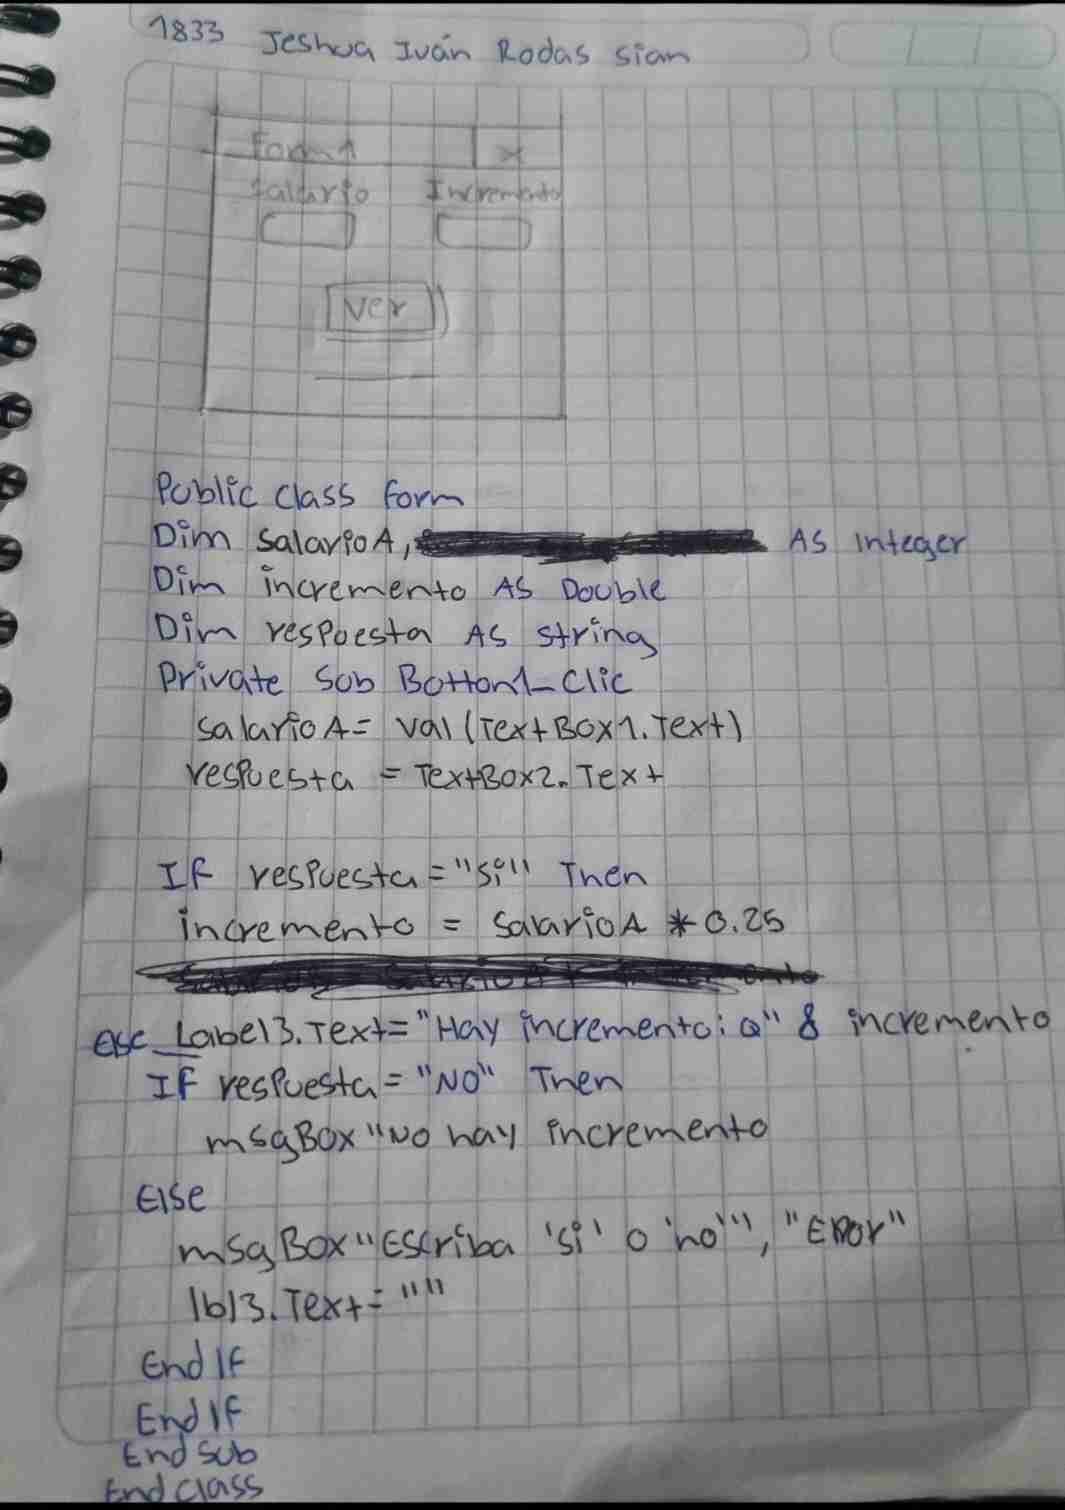 1833 Jeshua Iván Rodas Sian
Form1 X
Salario Incremento
Ver
Public class form
Dim SalarioA, As Integer
Dim incremento As Double
Dim respuesta As string
Private Sub Botton1_Clic
SalarioA= Val (TextBox1.Text)
respuesta = TextBox2.Text
If respuesta = "si" Then
incremento = SalarioA * 0.25
Else Label3.Text= "Hay incremento: Q" & incremento
If respuesta = "NO" Then
msgBox "No hay incremento
Else
msgBox "Escriba 'si' o 'no'", "Error"
lbl3.Text= ""
End If
End If
End sub
End class